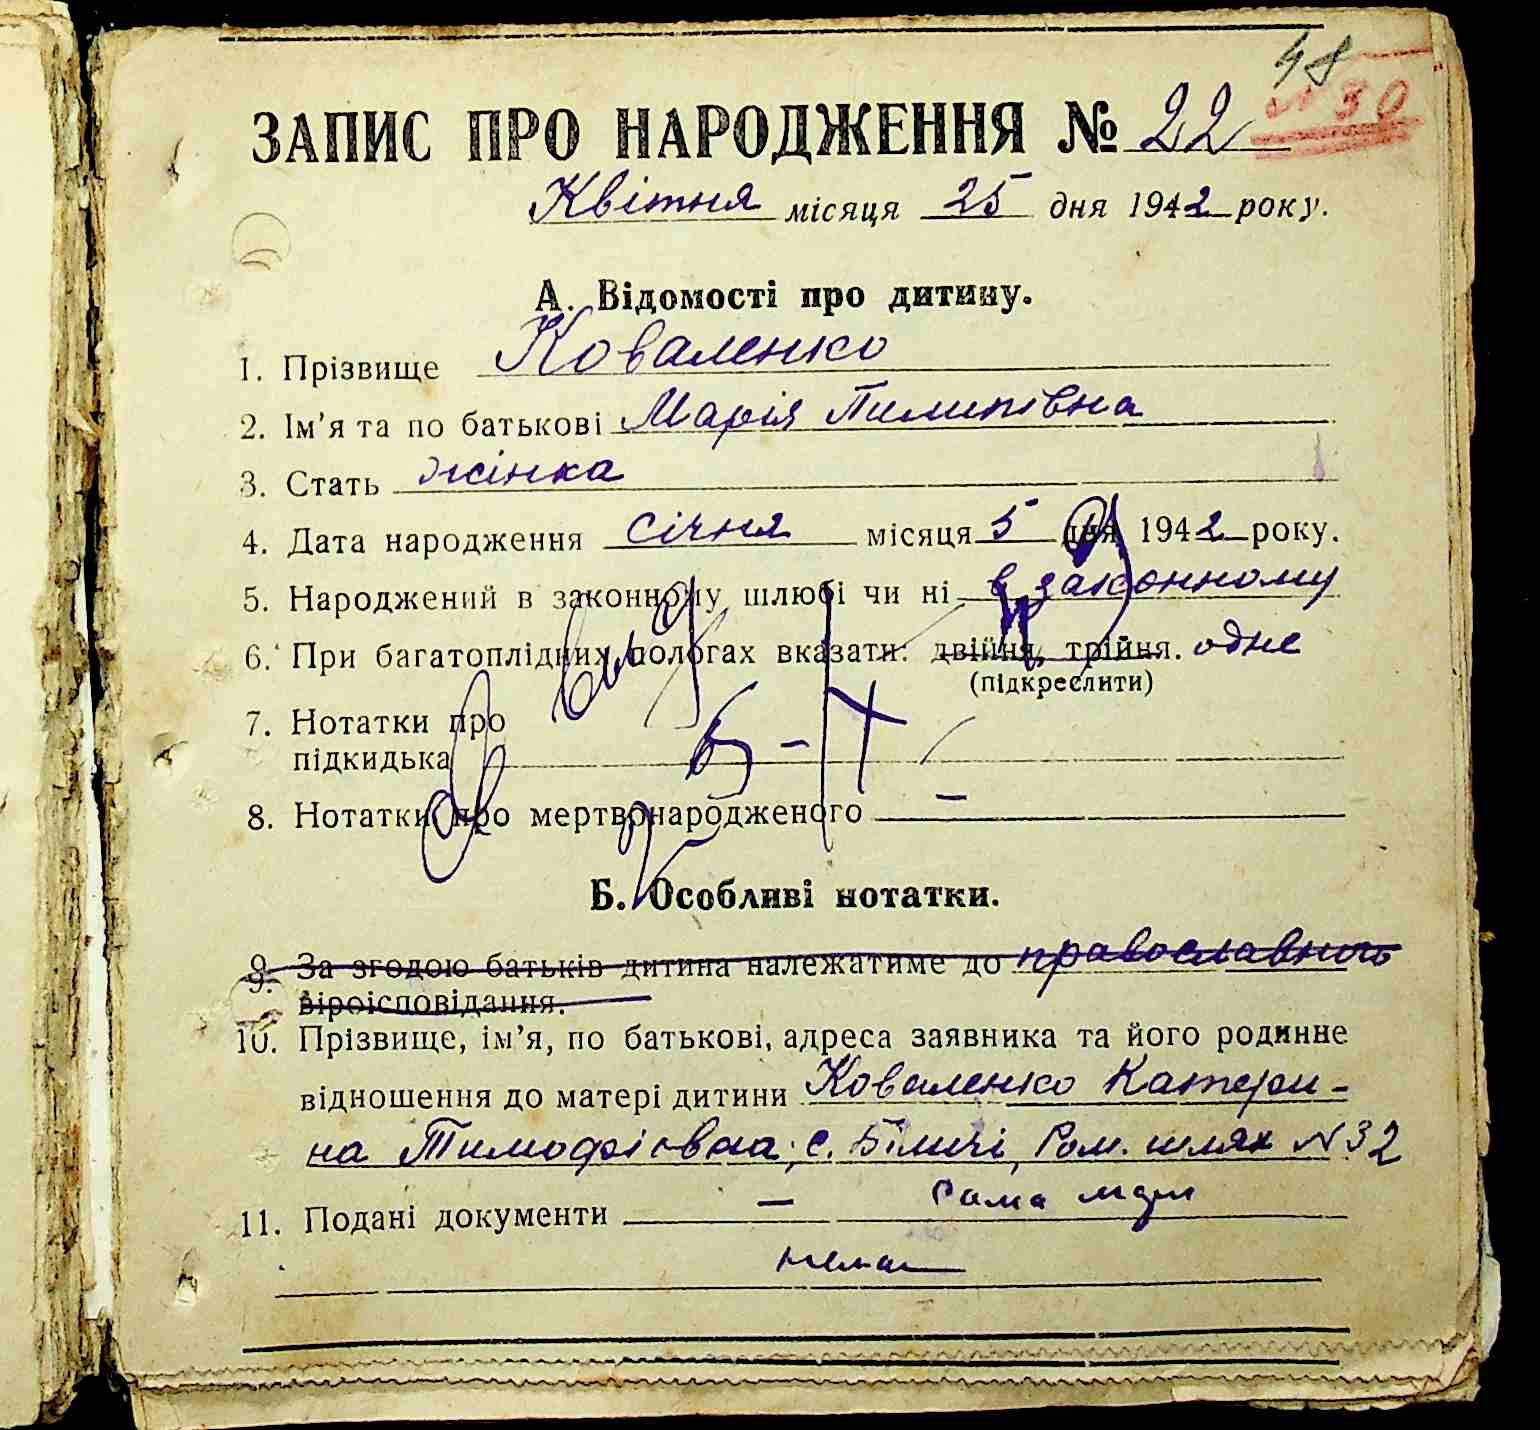 48
ЗАПИС ПРО НАРОДЖЕННЯ № 22 №30
Квітня місяця 25 дня 1942 року.
А. Відомості про дитину.
1. Прізвище Коваленко
2. Ім'я та по батькові Марія Пилипівна
3. Стать жінка
4. Дата народження січня місяця 5 дня 1942 року.
5. Народжений в законному шлюбі чи ні в законному
6. При багатоплідних пологах вказати: двійня, трійня. одне
(підкреслити)
7. Нотатки про
підкидька
8. Нотатки про мертвонародженого -
Б. Особливі нотатки.
9. За згодою батьків дитина належатиме до православного
віроісповідання.
10. Прізвище, ім'я, по батькові, адреса заявника та його родинне
відношення до матері дитини Коваленко Катери-
на Тимофіївна, с. Біличі, Ром. шлях №32
сама мати
11. Подані документи -
нема